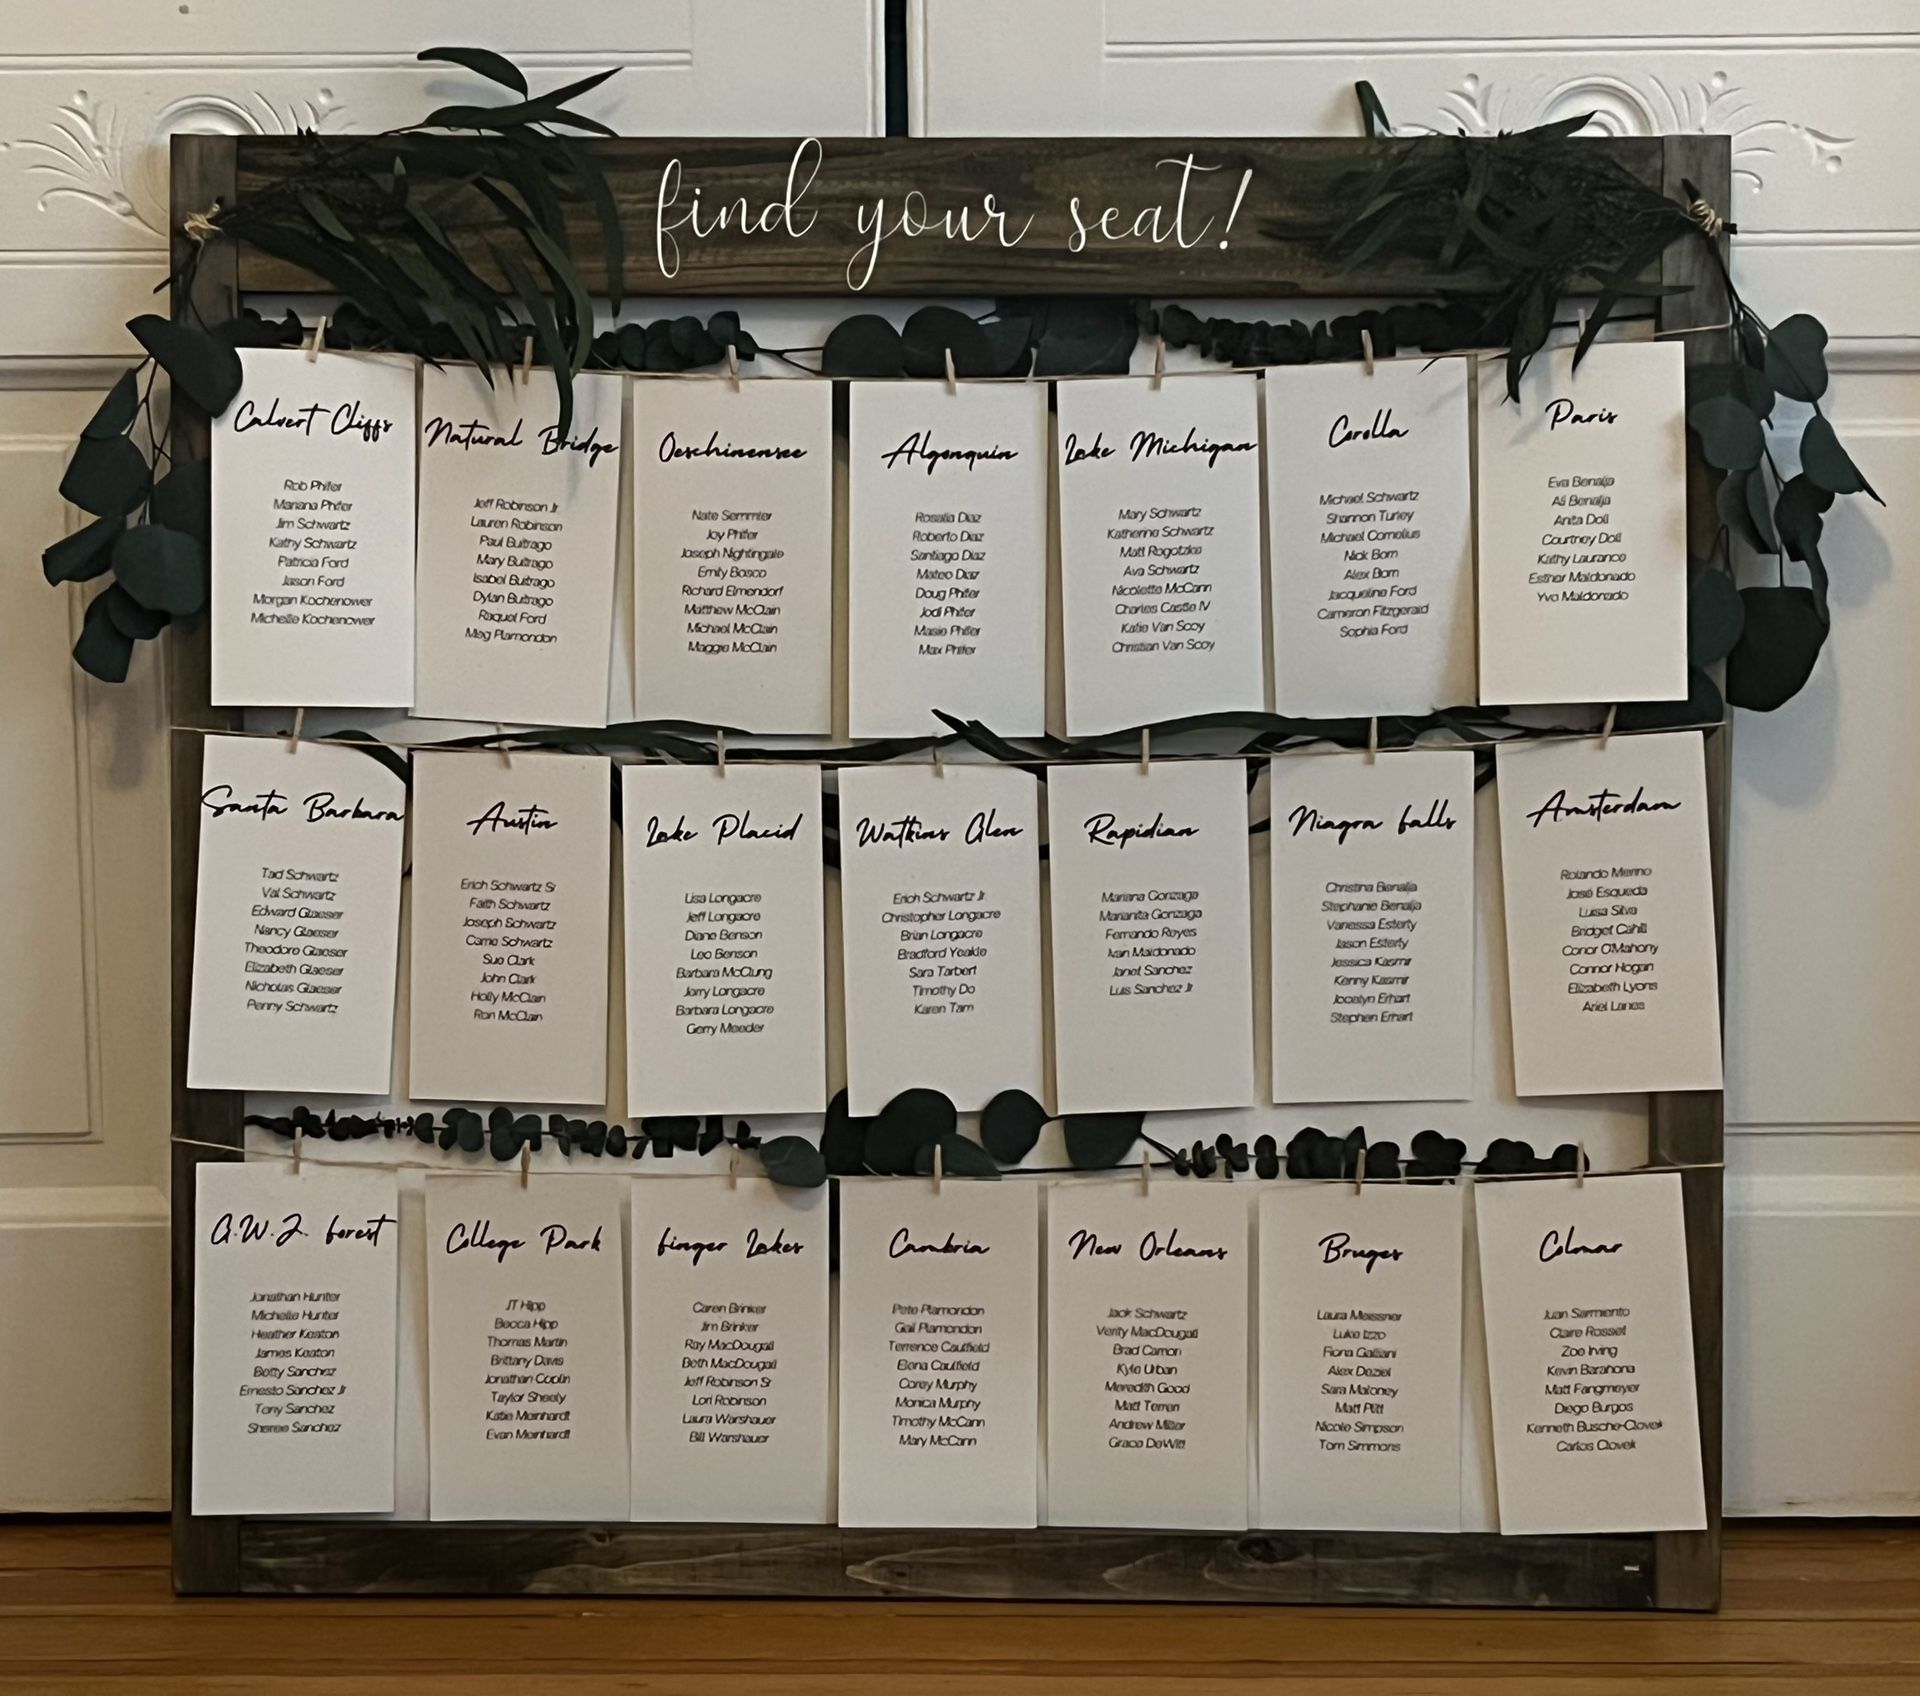 find your seat!
Calvert Cliffs
Rob Phifer
Mariana Phifer
Jim Schwartz
Kathy Schwartz
Patricia Ford
Jason Ford
Morgan Kochenower
Michelle Kochenower
Natural Bridge
Jeff Robinson Jr
Lauren Robinson
Paul Buitrago
Mary Buitrago
Isabel Buitrago
Dylan Buitrago
Raquel Ford
Meg Plamondon
Oeschinensee
Nate Semmler
Joy Phifer
Joseph Nightingale
Emily Bosco
Richard Elmendorf
Matthew McClain
Michael McClain
Maggie McClain
Algonquin
Rosalia Diaz
Roberto Diaz
Santiago Diaz
Mateo Diaz
Doug Phifer
Jodi Phifer
Masie Phifer
Max Phifer
Lake Michigan
Mary Schwartz
Katherine Schwartz
Matt Rogotzke
Ava Schwartz
Nicolette McCann
Charles Castle IV
Katie Van Sooy
Christian Van Sooy
Corolla
Michael Schwartz
Shannon Turley
Michael Cornelius
Nick Born
Alex Born
Jacqueline Ford
Cameron Fitzgerald
Sophia Ford
Paris
Eva Benalja
Ali Benalja
Anita Doll
Courtney Doll
Kathy Laurance
Esther Maldonado
Yva Maldonado
Santa Barbara
Tad Schwartz
Val Schwartz
Edward Glaeser
Nancy Glaeser
Theodore Glaeser
Elizabeth Glaeser
Nicholas Glaeser
Penny Schwartz
Austin
Erich Schwartz Sr
Faith Schwartz
Joseph Schwartz
Carrie Schwartz
Sue Clark
John Clark
Holly McClain
Ron McClain
Lake Placid
Lisa Longacre
Jeff Longacre
Diane Benson
Leo Benson
Barbara McClung
Jerry Longacre
Barbara Longacre
Gerry Meeder
Watkins Glen
Erich Schwartz Jr
Christopher Longacre
Brian Longacre
Bradford Yeakle
Sara Tarbert
Timothy Do
Karen Tam
Rapidian
Mariana Gonzaga
Marianita Gonzaga
Fernando Reyes
Ivan Maldonado
Janet Sanchez
Luis Sanchez Jr
Niagra Falls
Christina Benalja
Stephanie Benalja
Vanessa Esterly
Jason Esterly
Jessica Kasmir
Kenny Kasmir
Jocelyn Erhart
Stephen Erhart
Amsterdam
Rolando Merino
José Esqueda
Luisa Silva
Bridget Cahill
Conor O'Mahony
Connor Hogan
Elizabeth Lyons
Ariel Lanes
G.W.J. Forest
Jonathan Hunter
Michelle Hunter
Heather Keaton
James Keaton
Betty Sanchez
Ernesto Sanchez Jr
Tony Sanchez
Sheree Sanchez
College Park
JT Hipp
Becca Hipp
Thomas Martin
Brittany Davis
Jonathan Coplin
Taylor Sheely
Katie Meinhardt
Evan Meinhardt
Finger Lakes
Caren Brinker
Jim Brinker
Ray MacDougall
Beth MacDougall
Jeff Robinson Sr
Lori Robinson
Laura Warshauer
Bill Warshauer
Cambria
Pete Plamondon
Gail Plamondon
Terrence Caulfield
Elena Caulfield
Corey Murphy
Monica Murphy
Timothy McCann
Mary McCann
New Orleans
Jack Schwartz
Verity MacDougall
Brad Camon
Kyle Urban
Meredith Good
Matt Terren
Andrew Miller
Grace DeWitt
Bruges
Laura Meissner
Luke Izzo
Fiona Galliani
Alex Deziel
Sara Maloney
Matt Plitt
Nicole Simpson
Tom Simmons
Colmar
Juan Sarmiento
Claire Rosset
Zoe Irving
Kevin Barahona
Matt Fangmeyer
Diego Burgos
Kenneth Busche-Clovek
Carlos Clovek